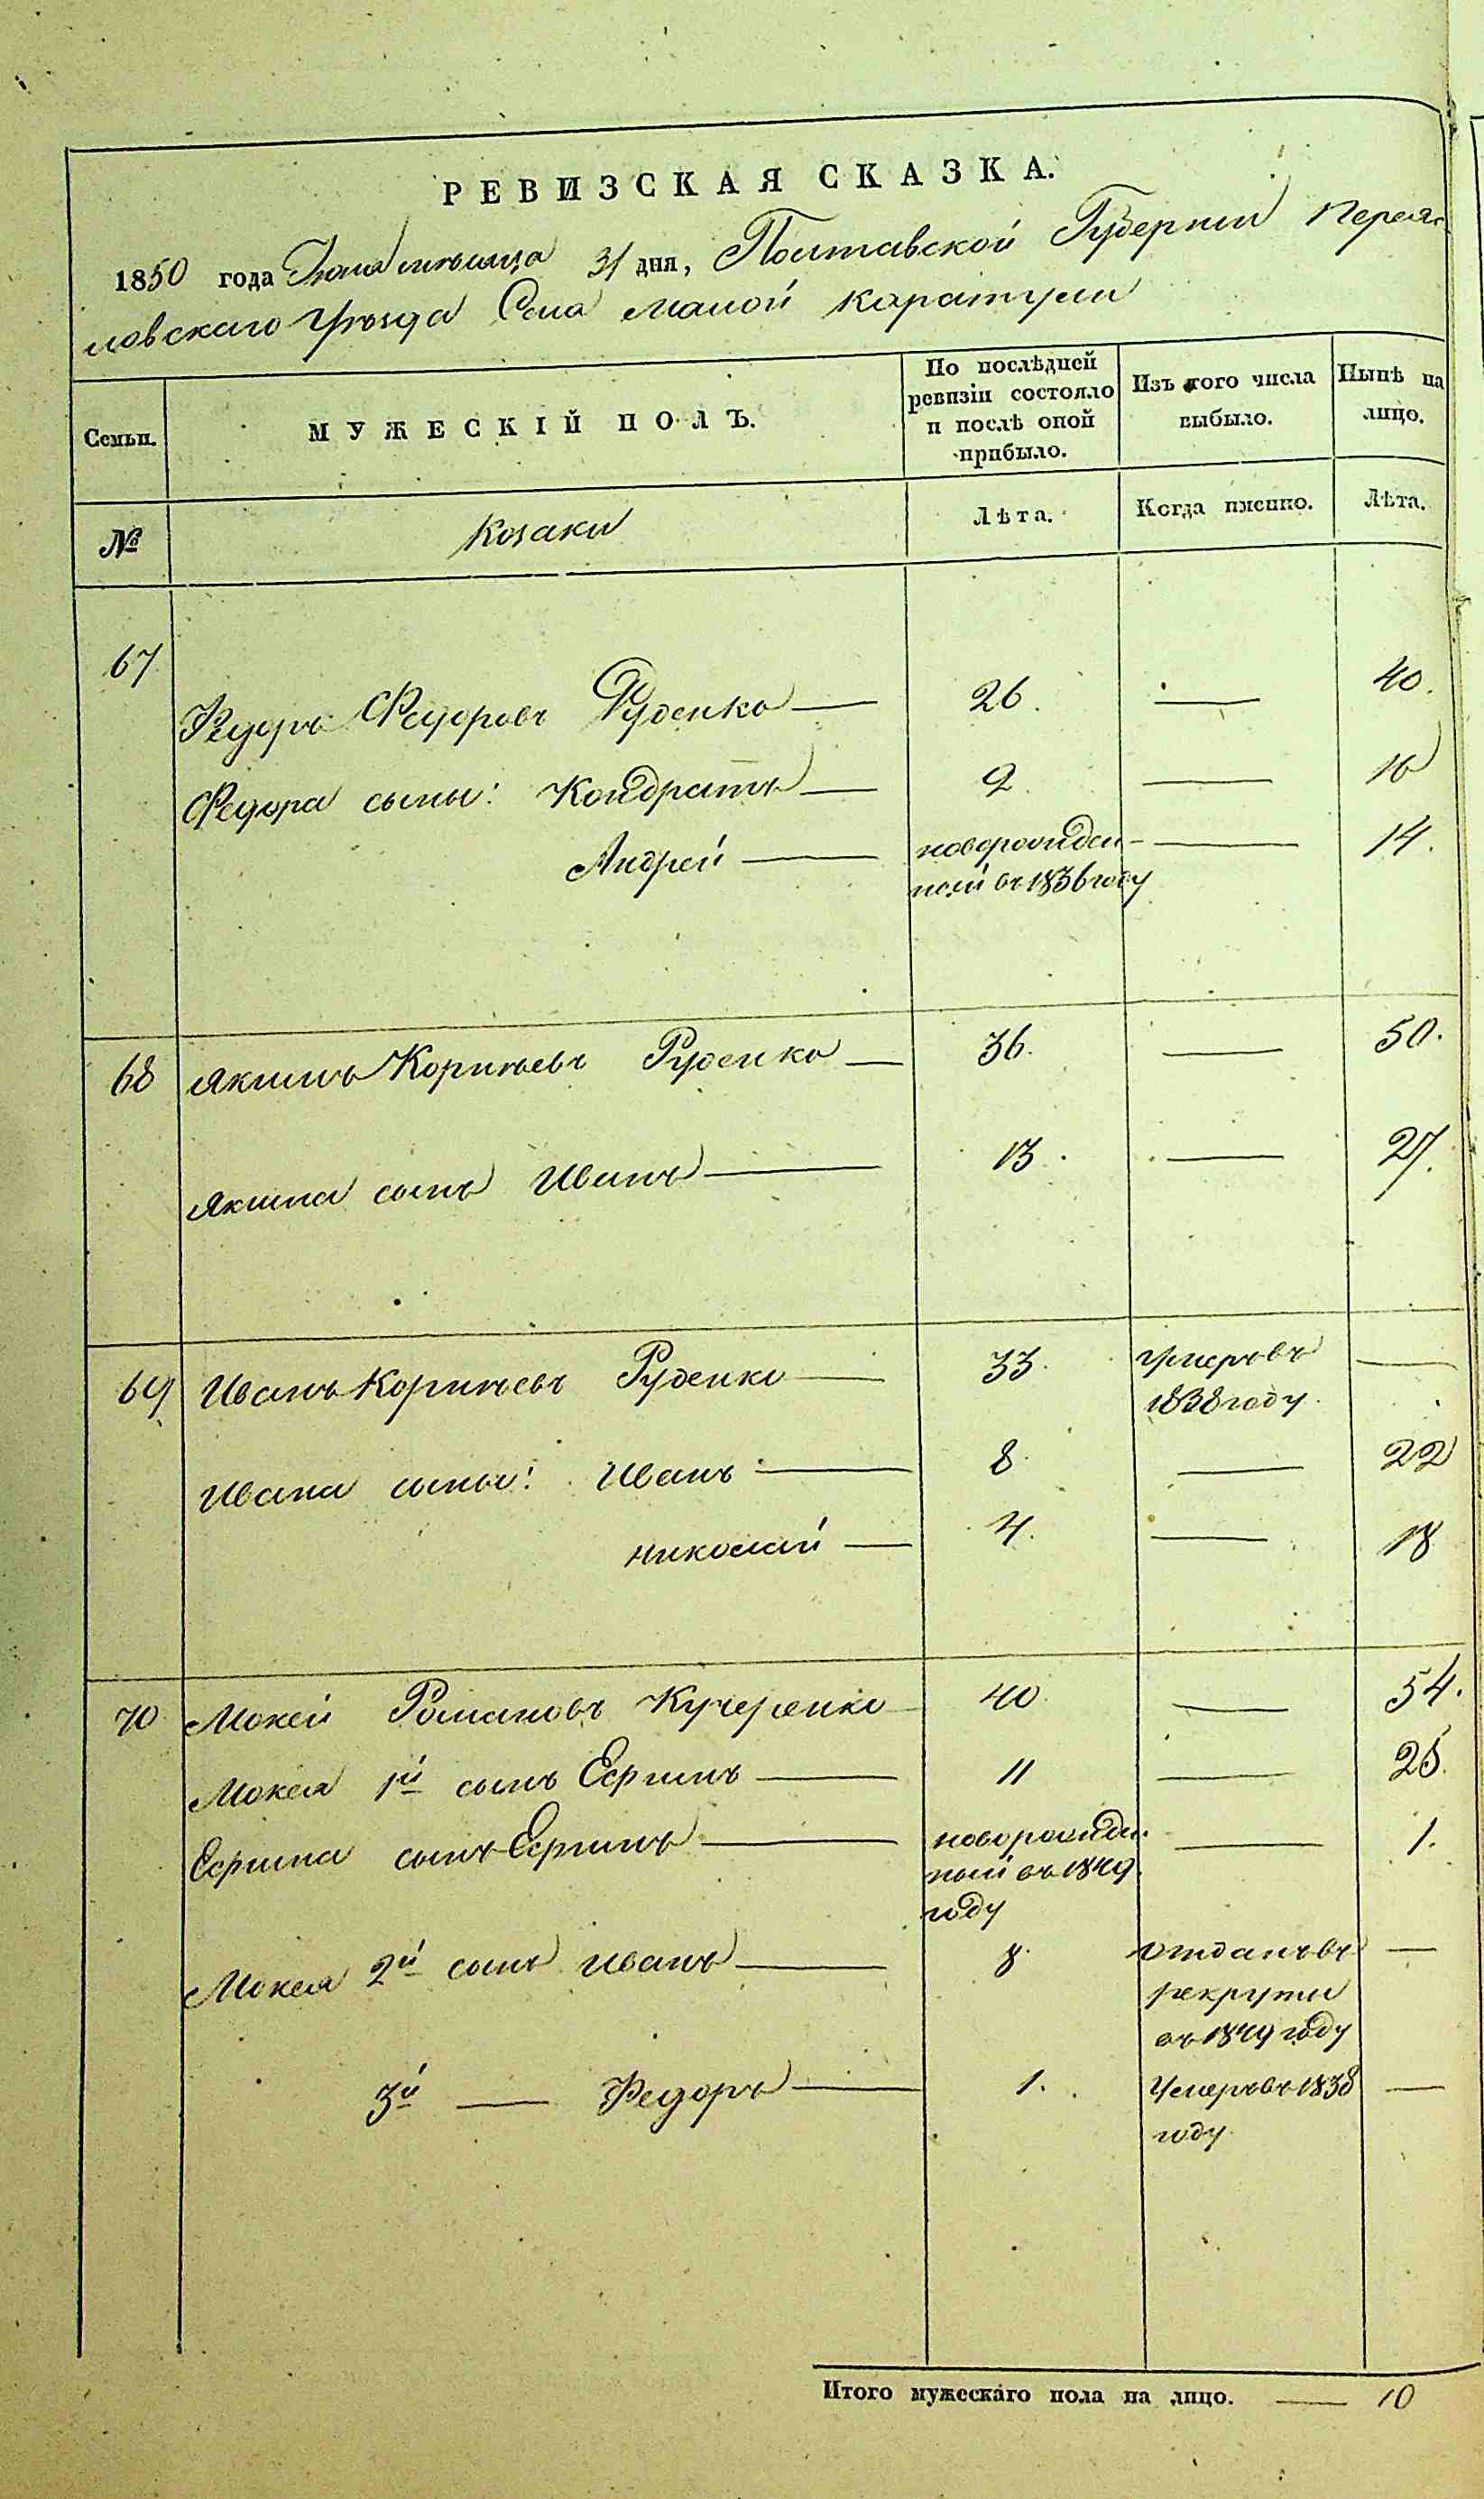 РЕВИЗСКАЯ СКАЗКА.
1850 года Июля мѣсяца 31 дня, Полтавской Губерніи Переяс
ловскаго Уѣзда Села малой каратули
Семьи. МУЖЕСКІЙ ПОЛЪ. По послѣдней ревизіи состояло и послѣ оной прибыло. Изъ того числа выбыло. Нынѣ на лицо.
№ Козаки Лѣта. Когда именно. Лѣта.
67
Федоръ Федоровъ Руденко — 26. — 40.
Федора сыны: Кондратъ — 2. — 16
Андрей — новорожден- — 14.
ный въ 1836 году
68 Якимъ Корнѣевъ Руденко — 36. — 50.
Якима сынъ Иванъ — 13. — 27.
69 Иванъ Корнѣевъ Руденко — 33. умеръ въ —
1838 году.
Ивана сыны: Иванъ — 8. — 22
николай — 4. — 18
70 Мокей Романовъ Кучеренко 40. — 54.
Мокея 1й сынъ Ефимъ — 11 — 25.
Ефима сынъ Ефимъ — новорожде. — 1.
ный въ 1849
году
Мокея 2й сынъ иванъ — 8. отданъ въ —
рекруты
въ 1849 году
3й — Федоръ — 1. Умеръ въ 1838 —
году
Итого мужескаго пола на лицо. — 10